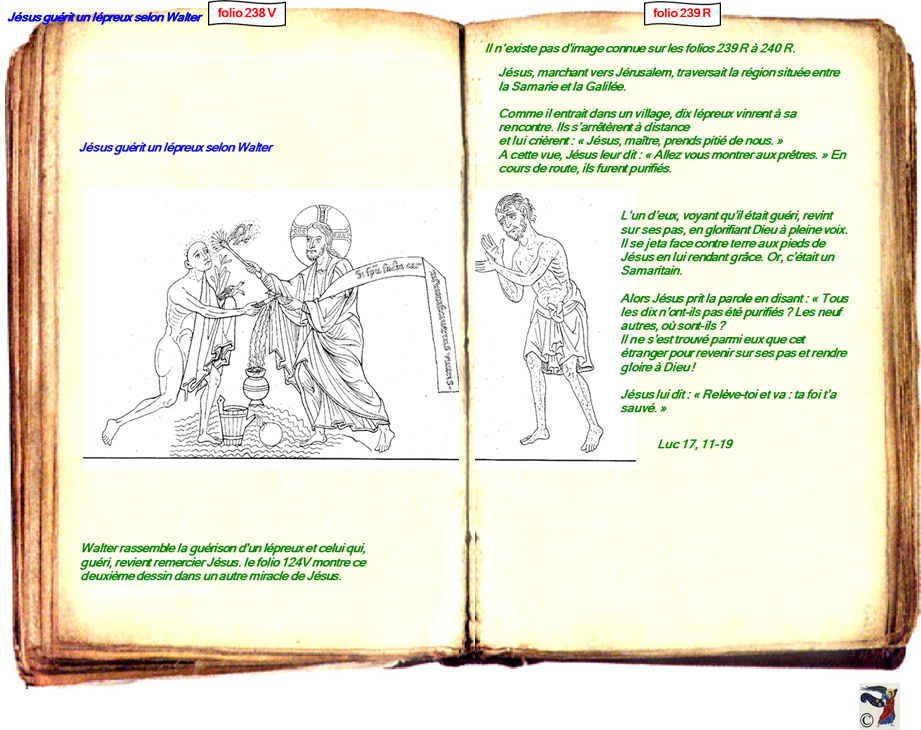 Jésus guérit un lépreux selon Walter
folio 238 V
Jésus guérit un lépreux selon Walter
Si spu factu car
Walter rassemble la guérison d'un lépreux et celui qui,
guéri, revient remercier Jésus. le folio 124V montre ce
deuxième dessin dans un autre miracle de Jésus.
folio 239 R
Il n'existe pas d'image connue sur les folios 239 R à 240 R.
Jésus, marchant vers Jérusalem, traversait la région située entre
la Samarie et la Galilée.
Comme il entrait dans un village, dix lépreux vinrent à sa
rencontre. Ils s'arrêtèrent à distance
et lui crièrent : « Jésus, maître, prends pitié de nous. »
A cette vue, Jésus leur dit : « Allez vous montrer aux prêtres. » En
cours de route, ils furent purifiés.
L'un d'eux, voyant qu'il était guéri, revint
sur ses pas, en glorifiant Dieu à pleine voix.
Il se jeta face contre terre aux pieds de
Jésus en lui rendant grâce. Or, c'était un
Samaritain.
Alors Jésus prit la parole en disant : « Tous
les dix n'ont-ils pas été purifiés ? Les neuf
autres, où sont-ils ?
Il ne s'est trouvé parmi eux que cet
étranger pour revenir sur ses pas et rendre
gloire à Dieu !
Jésus lui dit : « Relève-toi et va : ta foi t'a
sauvé. »
Luc 17, 11-19
©